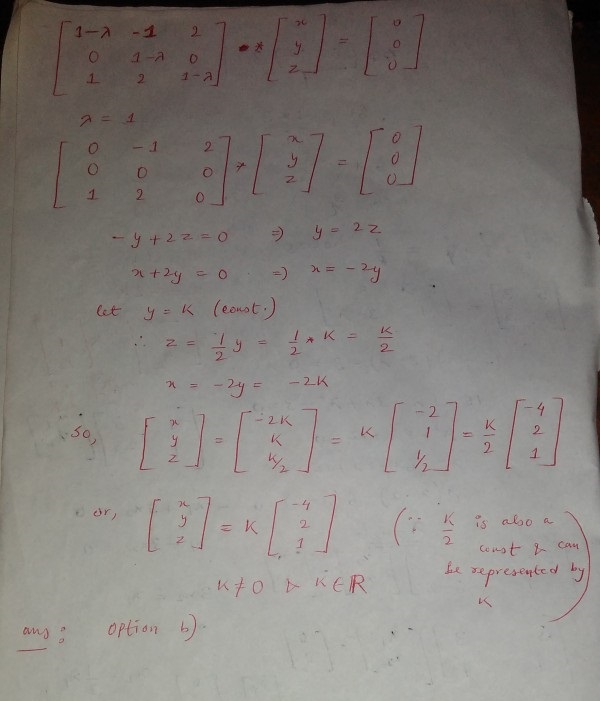 [1-λ -1 2] * [x] = [0]
[0 1-λ 0] [y] [0]
[1 2 1-λ] [z] [0]
λ = 1
[0 -1 2] * [x] = [0]
[0 0 0] [y] [0]
[1 2 0] [z] [0]
-y + 2z = 0 ⇒ y = 2z
x + 2y = 0 ⇒ x = -2y
let y = K (const.)
∴ z = 1/2 y = 1/2 * K = K/2
x = -2y = -2K
So, [x] = [-2K] = K [-2] = K/2 [-4]
[y] [K] [1] [2]
[z] [K/2] [1/2] [1]
or, [x] = K [-4]
[y] [2]
[z] [1]
(∵ K/2 is also a
const & can
be represented by
K)
K ≠ 0 & K ∈ ℝ
ans: option b)